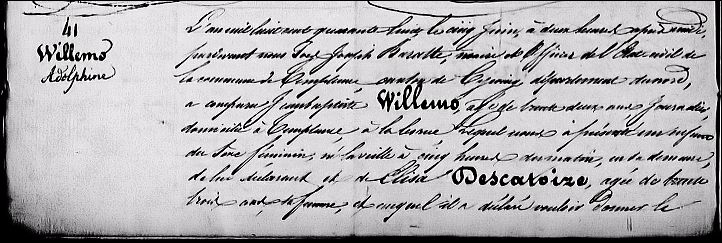 41
Willems
Adolphine
L'an mil huit cent quarante cinq le cinq juin, à deux heures après midi,
pardevant nous Joseph Baratte, maire et Officier de l'Etat civil de
la commune de Templeuve canton de Cysoing département du nord,
a comparu Jean baptiste Willems, agé de trente deux ans, journalier
domicilié à Templeuve, à la Lequel nous a présenté un enfant
du sexe féminin, né la veille à cinq heures du matin, en sa demeure
de lui déclarant et de Elisa Descatoize, agée de trente
trois ans, sa femme, et auquel il a déclaré vouloir donner le